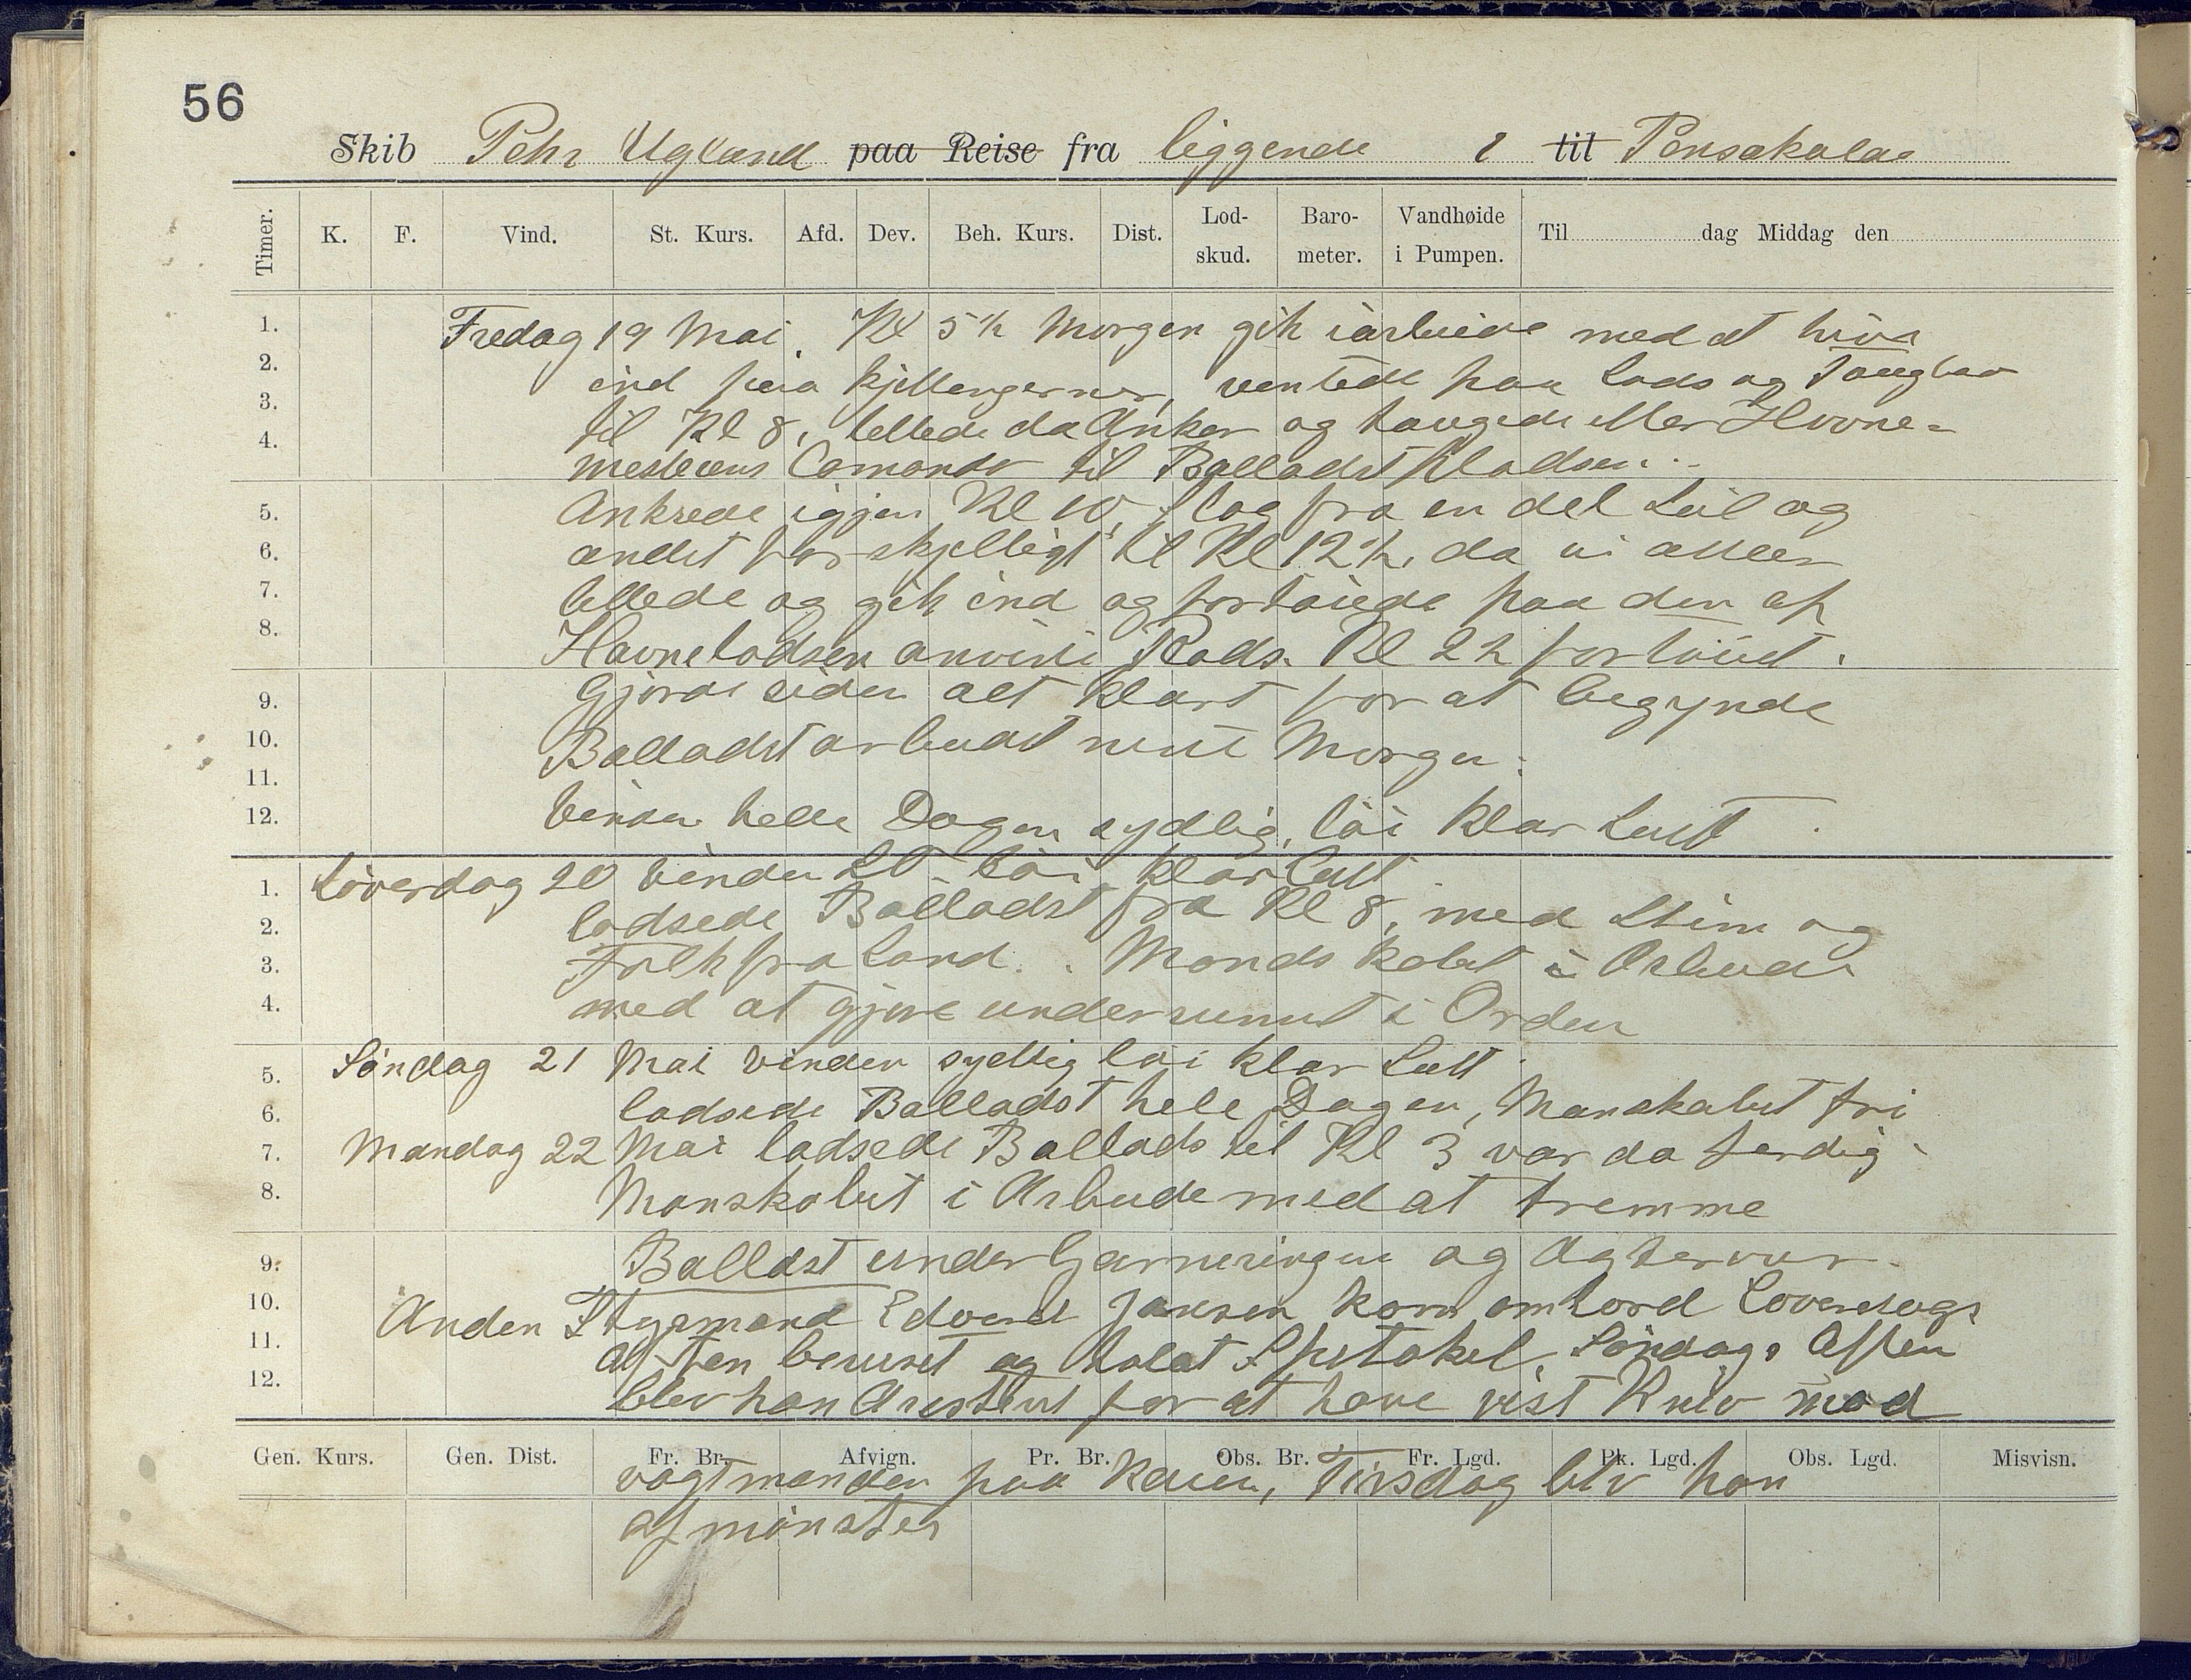 56
Skib Pehr Ugland paa Reise fra liggende i til Pensakola
Timer. K. F. Vind. St. Kurs. Afd. Dev. Beh. Kurs. Dist. Lod-skud. Baro-meter. Vandhøide i Pumpen. Til dag Middag den
1. Fredag 19 Mai. Kl 5½ Morgen gik i arbeide med at hive
2. ind paa kjettingerne, ventede paa Lods og Taugbaad
3. til Kl 8, lettede da Anker og taugede efter Havne-
4. mesterens Comando til Balladst Pladsen.
5. Ankrede igjen Kl 10, slog fra en del Seil og
6. andet forskjelligt til Kl 12½, da vi atter
7. lettede og gik ind og fortøiede paa den af
8. Havnelodsen anviste Plads. Kl 2½ fortøiet.
9. Gjorde siden alt klart for at begynde
10. Balladstarbeidet neste Morgen.
11.
12. Vinden hele Dagen sydlig, løi klar Luft
1. Løverdag 20 Vinden SO løi klar Luft
2. lodsede Balladst fra Kl 8, med Stim og
3. Folk fra Land. Mandskabet i Arbeide
4. med at gjøre underrummet i Orden
5. Søndag 21 Mai Vinden sydlig løi klar Luft
6. lodsede Balladst hele Dagen, Manskabet fri
7. Mandag 22 Mai lodsede Ballads til Kl 3 var da ferdig
8. Manskabet i Arbeide med at tremme
9. Ballast under Garneringen og Agterover
10. Anden Styrmand Edvard Jansen kom ombord Løverdags
11. Aften beruset og holdt Spetakel, Søndags Aften
12. blev han Arestert for at have vist Kniv mod
Gen. Kurs. Gen. Dist. Fr. Br. Afvign. Pr. Br. Obs. Br. Fr. Lgd. Pk. Lgd. Obs. Lgd. Misvisn.
vagtmanden paa Kaien, Tirsdag blv han
afmønster